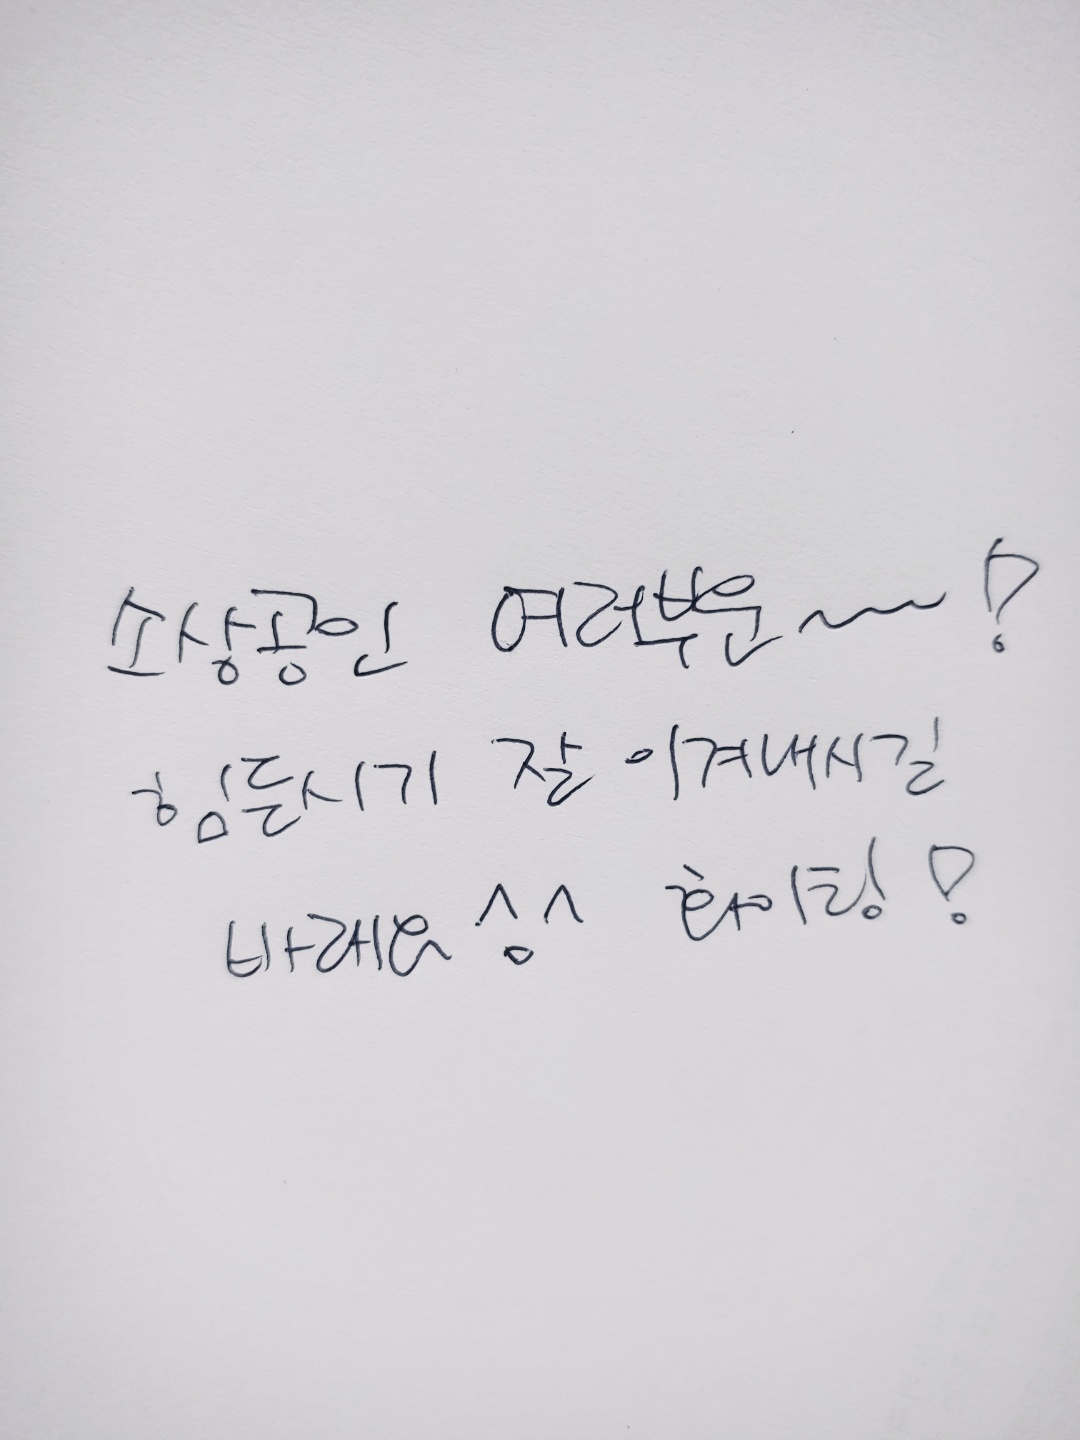 소상공인 여러분~~!
힘든시기 잘 이겨내시길
바래요 ^o^ 화이팅!